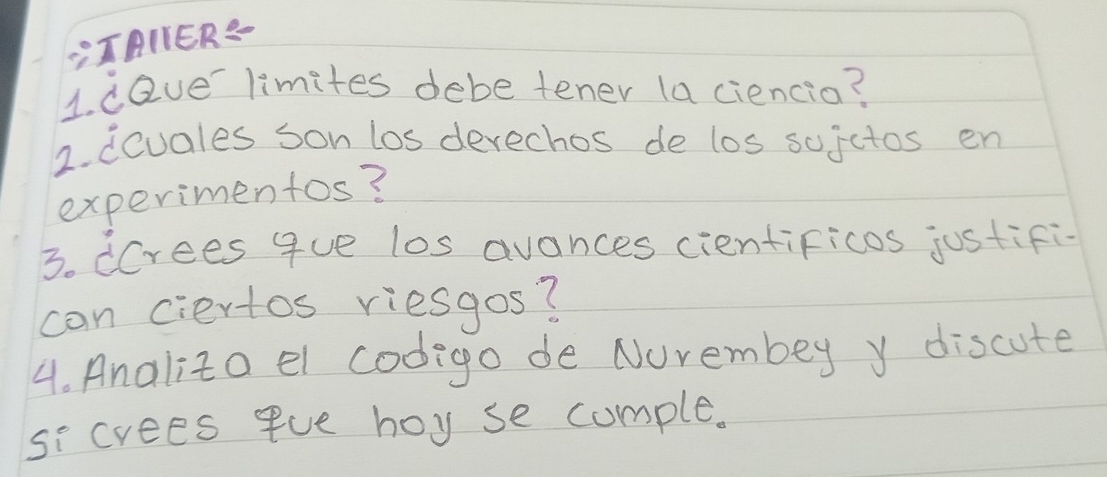 TAllER
1. ¿Que limites debe tener la ciencia?
2. ¿cuales son los derechos de los sujetos en
experimentos?
3. ¿Crees que los avances cientificos justifi-
can ciertos riesgos?
4. Analiza el codigo de Nurembey y discute
si crees que hoy se cumple.